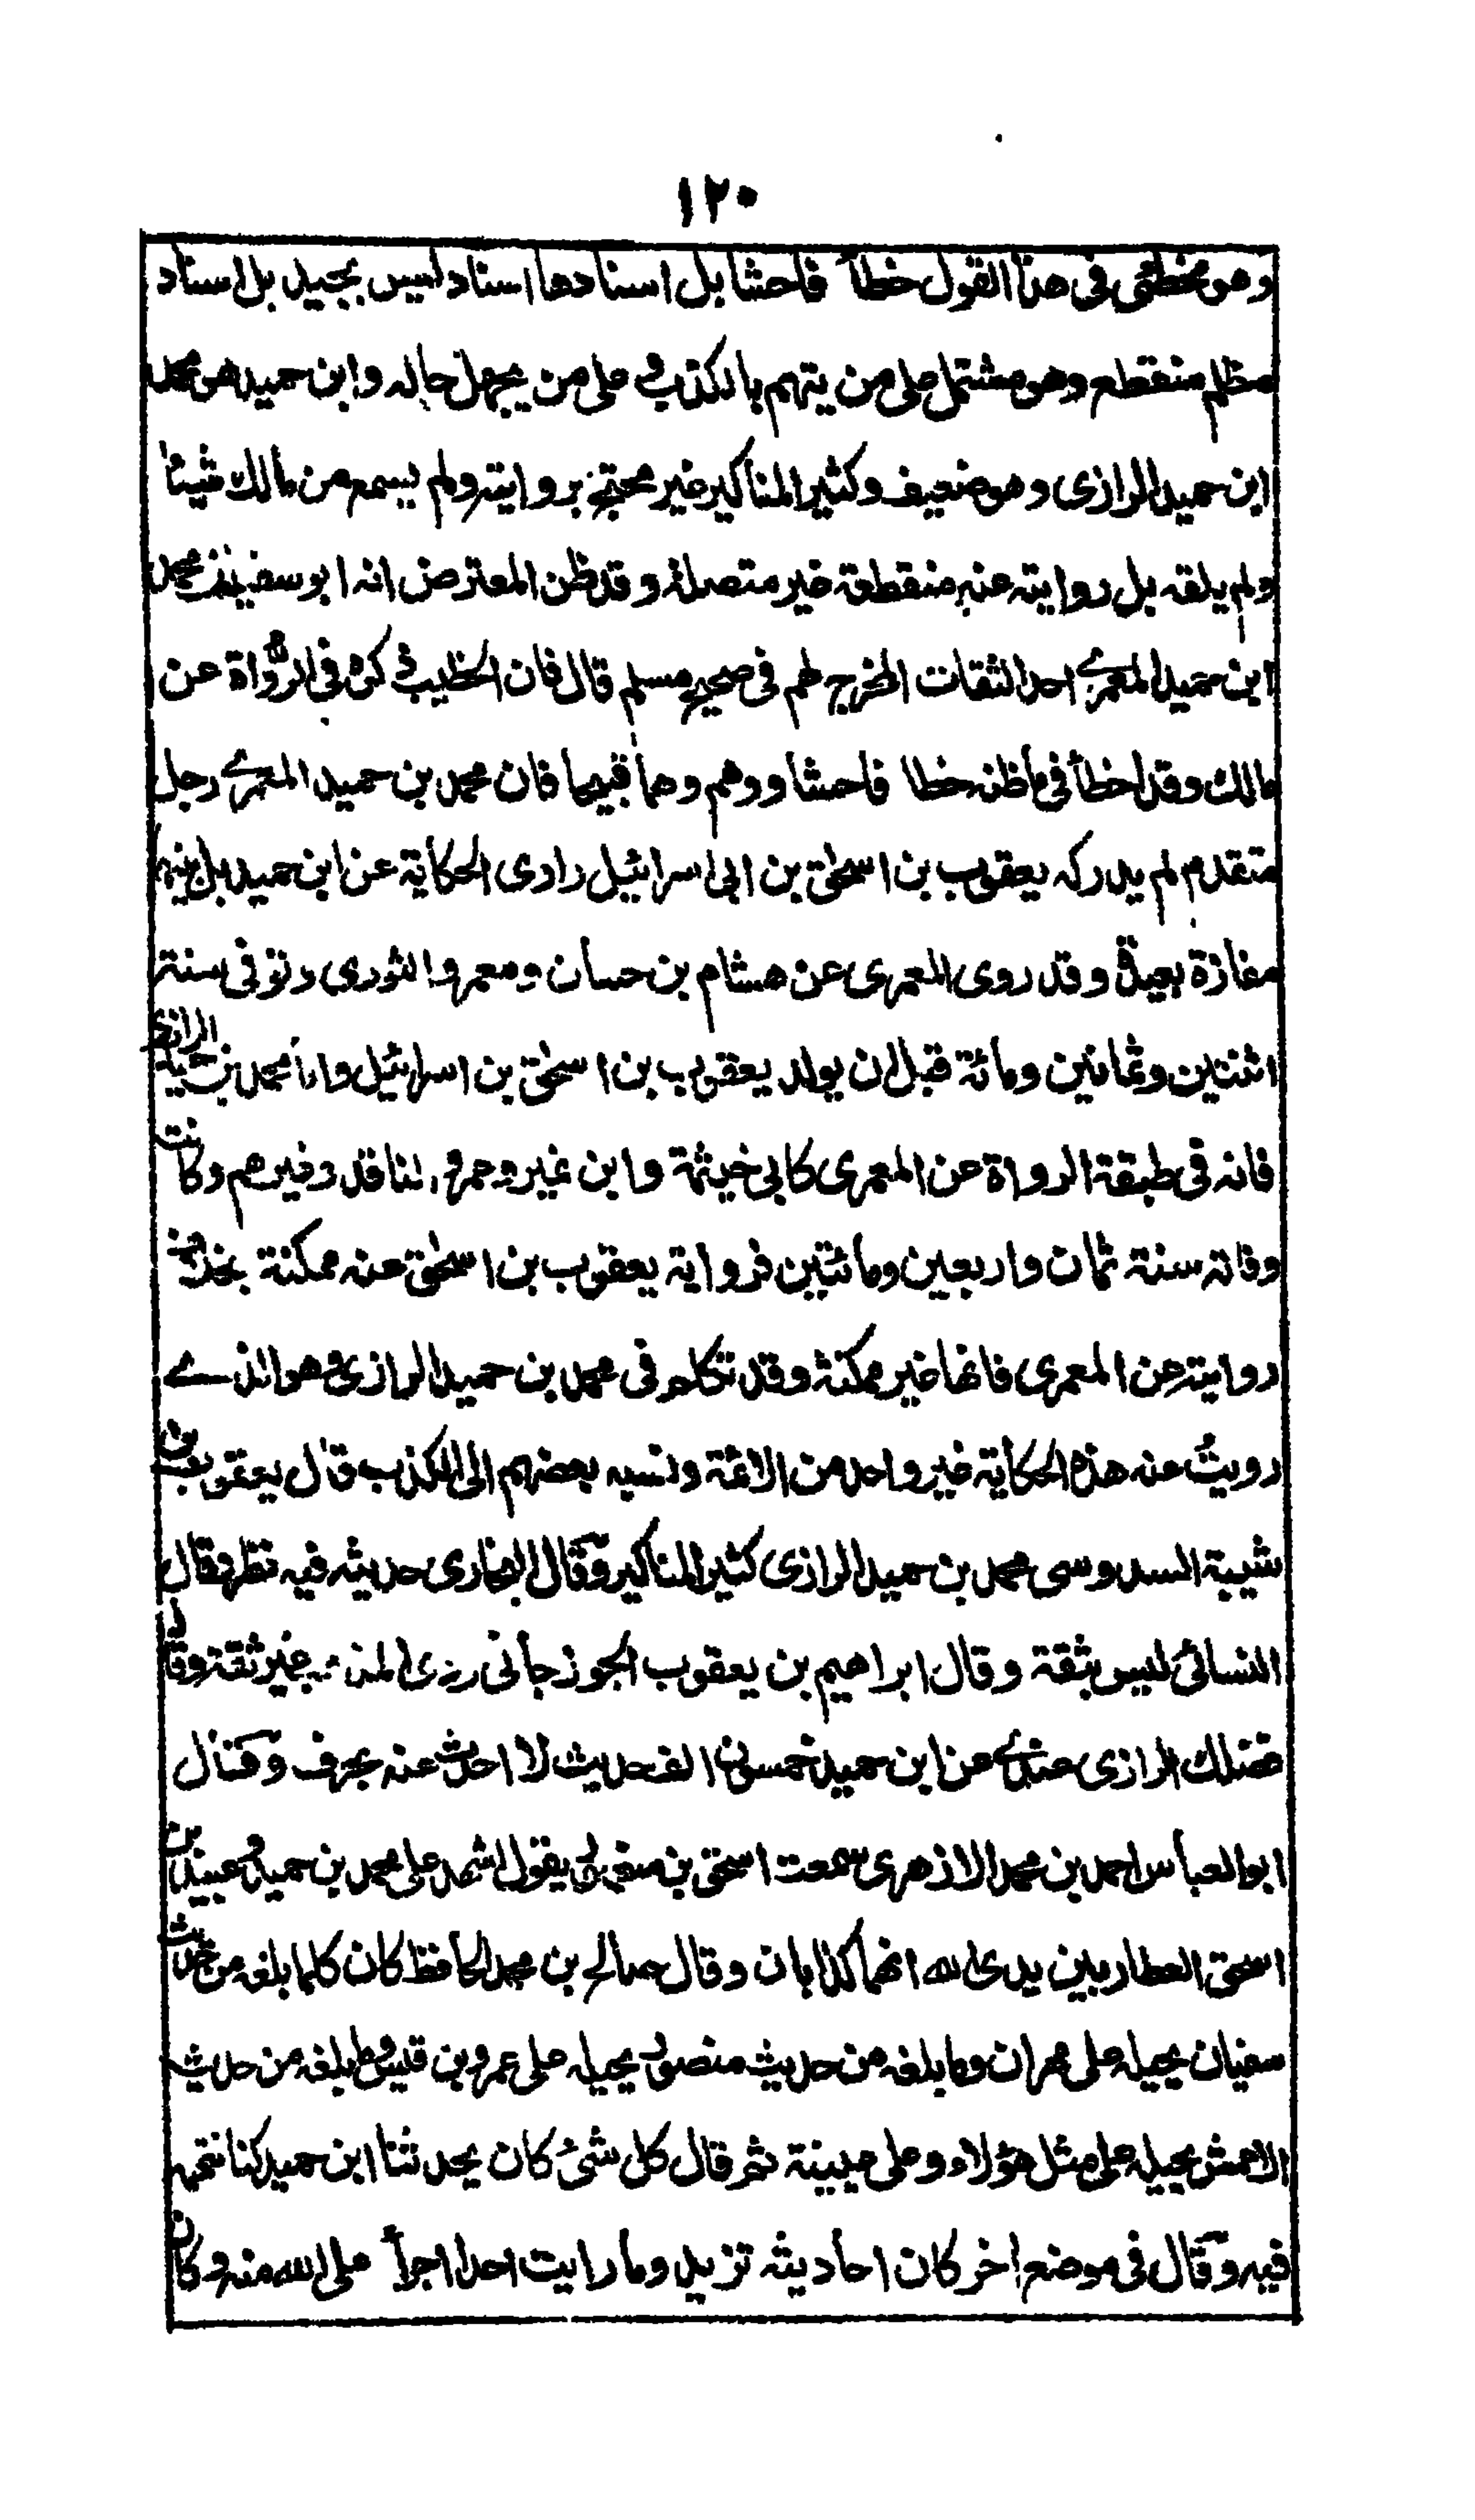 ١٢٠
وهو مخطئ في هذا القول خطأ فاحشا بل اسنادها اسناد ليس بجيد بل اسناد
مظلم منقطع وهو مشتمل على من يتهم بالكذب و على من يجهل حاله وابن حميد هو محمد
ابن حميد الرازى وهو ضعيف وكثير المناكير غير محتج بروايته ولم يسمع من مالك شيئا
ولم يلقه بل روايته عنه منقطعة غير متصلة وقد ظن المعترض انه ابو سفين محمد
ابن حميد المعمرى احد الثقات المخرج لهم في صحيح مسلم قال فان الخطيب ذكره في الرواة عن
مالك وقد اخطأ في ما ظنه خطا فاحشا ووهم وهما قبيحا فان محمد بن حميد المعمرى رجل
متقدم لم يدركه يعقوب بن اسحٰق بن ابى اسرائيل راوى الحكاية عن ابن حميد بل بينهما
مفازة بعيدة وقد روى المعمرى عن هشام بن حسان ومعمر والثورى وتوفى سنة
اثنتين وثمانين ومائة قبل ان يولد يعقوب بن اسحٰق بن اسرائيل واما محمد بن حميد الرازى
فانه في طبقة الرواة عن المعمرى كابى خيثمة وابن نمير وعمرو الناقد وغيرهم وكانت
وفاته سنة ثمان واربعين ومائتين فرواية يعقوب بن اسحٰق عنه ممكنة بخلاف
روايته عن المعمرى فانها غير ممكنة وقد تكلم في محمد بن حميد الرازى وهو الذے
رويت عنه هذه الحكاية غير واحد من الائمة ونسبه بعضهم الى الكذب قال يعقوب بن
شيبة السدوسى محمد بن حميد الرازى كثير المناكير وقال البخارى حديثه فيه نظر وقال
النسائى ليس بثقة وقال ابراهيم بن يعقوب الجوزجانى ردى المذهب غير ثقة وقال
فضلك الرازى عندى عن ابن حميد خمسون الف حديث لا احدث عنه بحرف وقال
ابو العباس احمد بن محمد الازهرى سمعت اسحق بن منصور يقول اشهد على محمد بن حميد وعبيد بن
اسحق العطار بين يدى الله انهما كذابان وقال صالح بن محمد الحافظ كان كلما بلغه من حديث
سفيان يحيله على مهران وما بلغه من حديث منصور يحيله على عمرو بن قيس وما بلغه من حديث
الاعمش يحيله على مثل هؤلاء وعلى عيينة ثم قال كل شئ كان يحدثنا ابن حميد كنا نتهمه
فيه وقال في موضع اخر كان احاديثه تزيد وما رايت احدا اجرأ على الله منه وكان